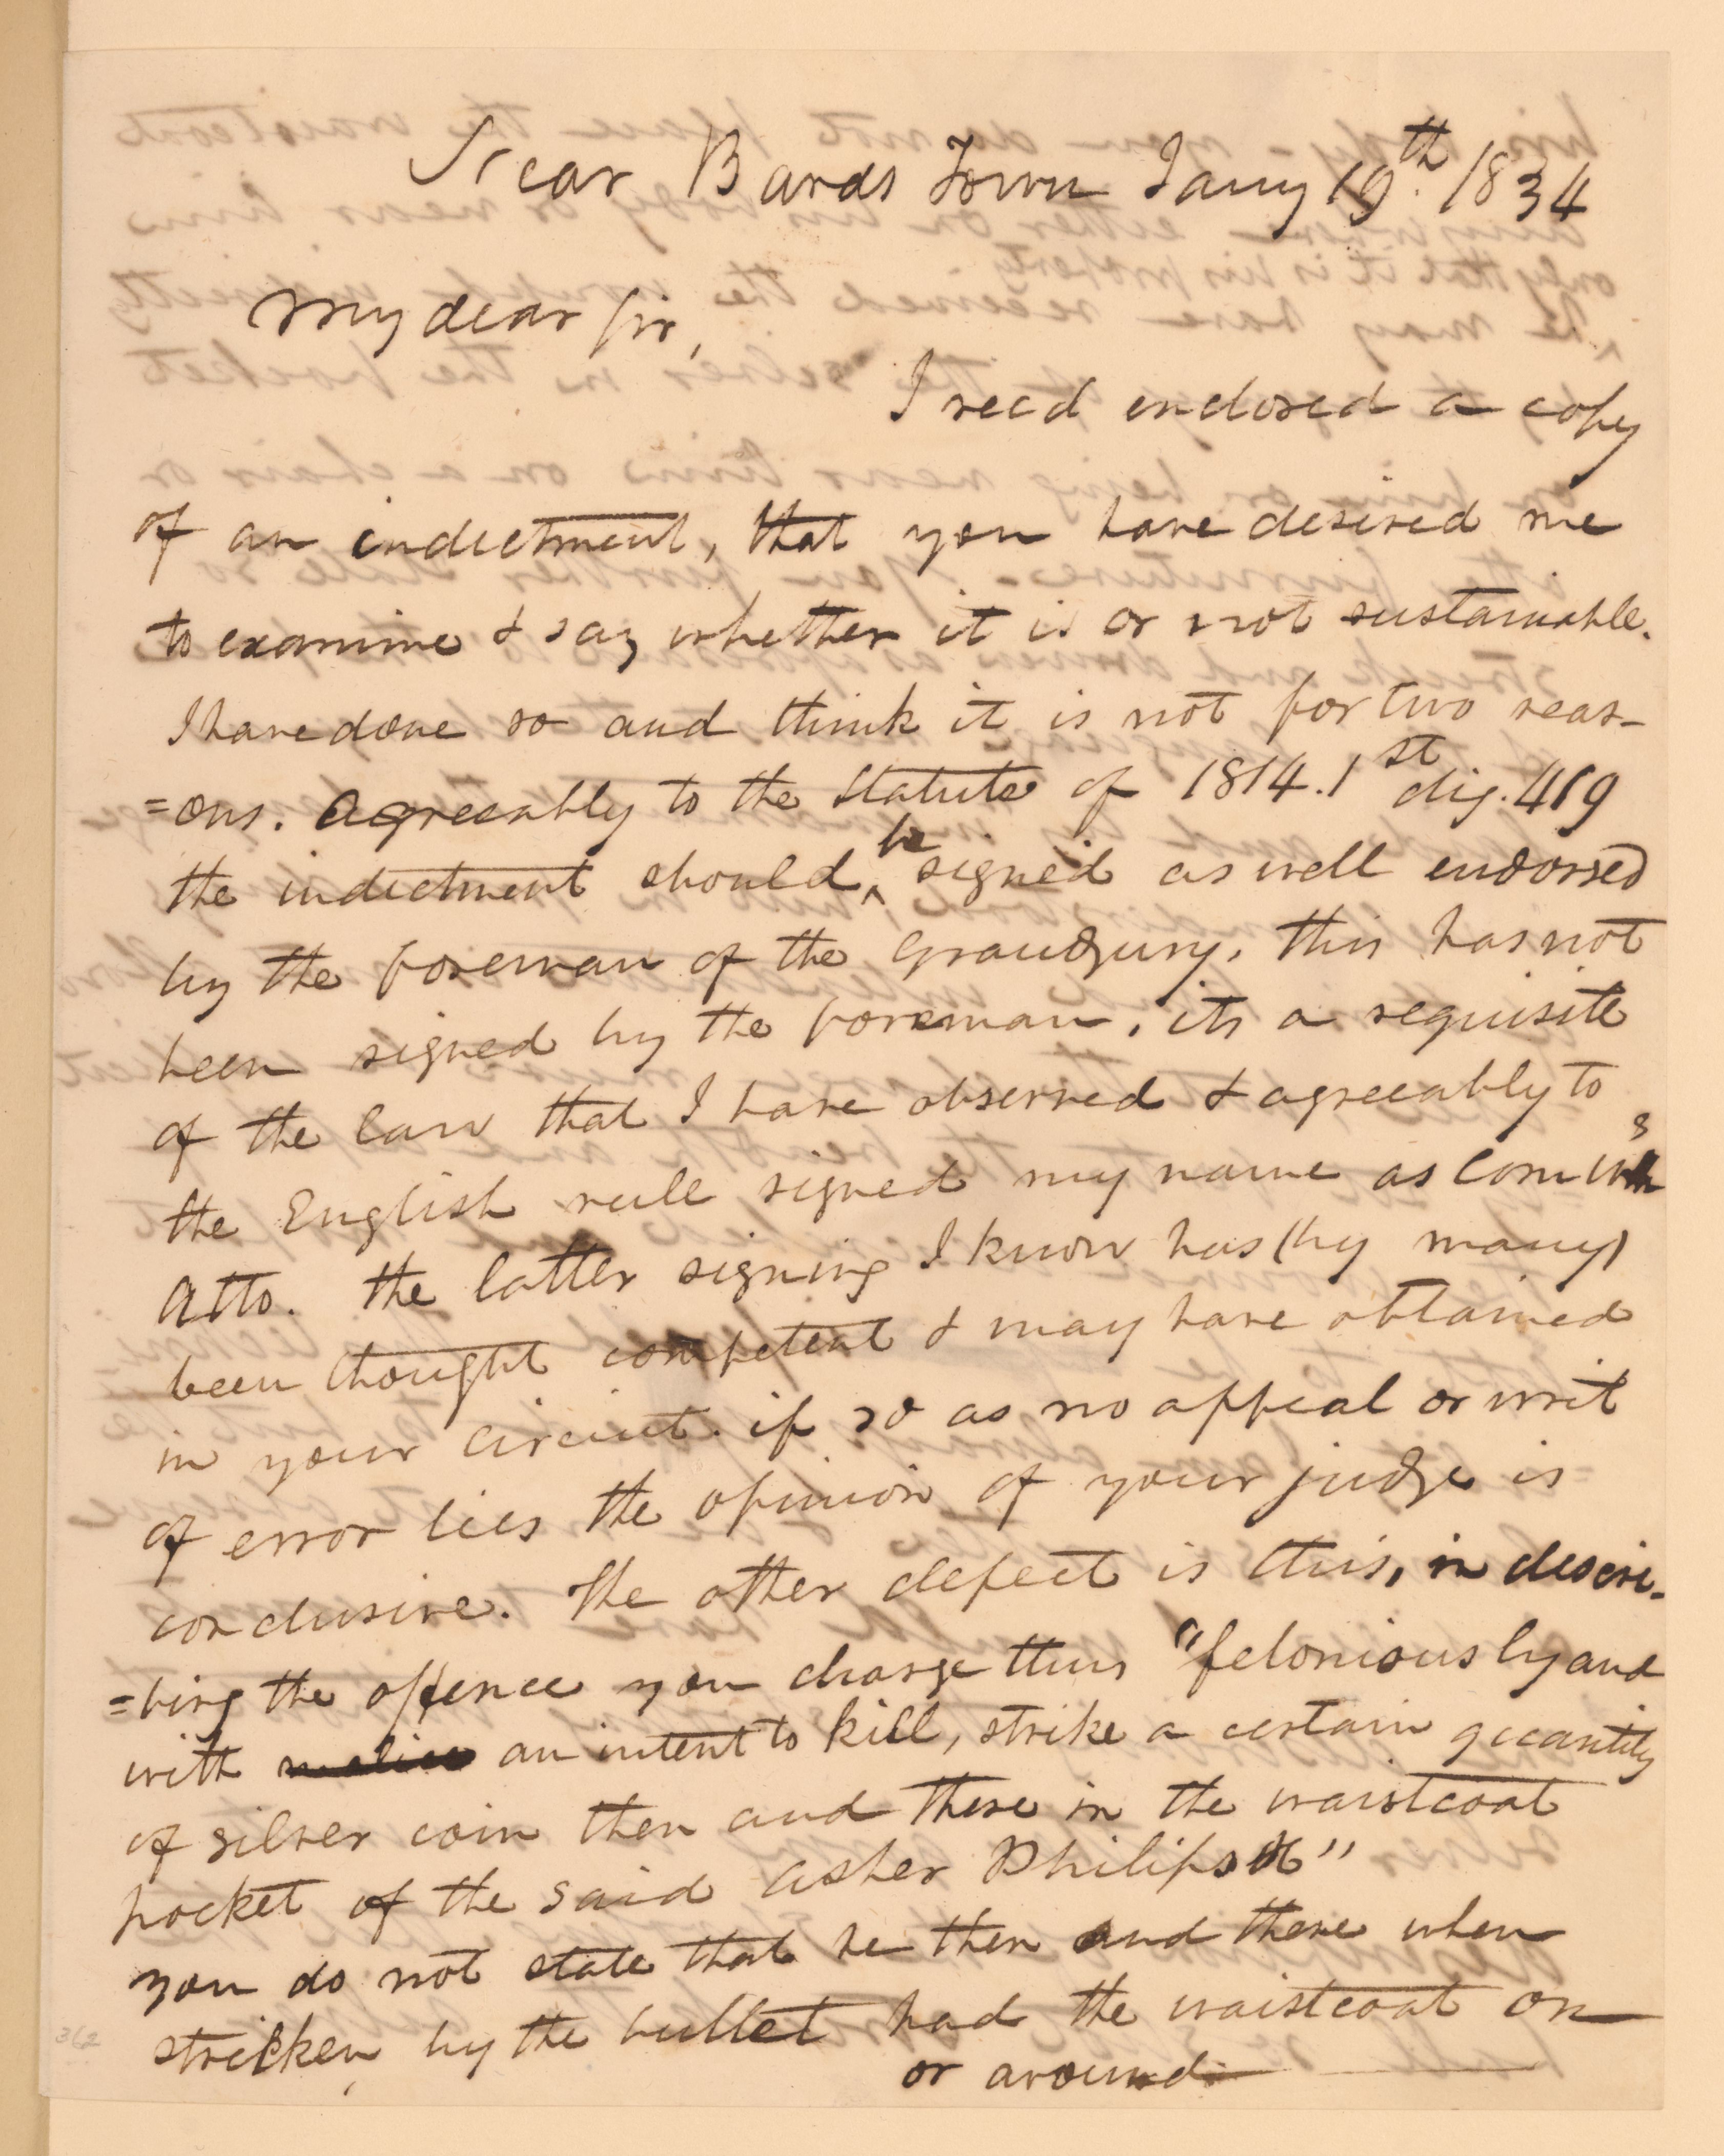 Near Bards Town Jany 19th. 1834
My dear Sir,
I recd enclosed a copy
of an indictment, that you have desired me
to examine & say whether it is or not sustainable.
I have done so and think it is not for two reas-
=ons. Agreeably to the Statute of 1814. 1st dig. 419
the indictment should be signed as well endorsed
by the foreman of the Grandjury, this has not
been signed by the foreman, its a requisite
of the law that I have observed & agreeably to
the English rule signed my name as
Atto. the latter signing I know has (by many)
been thought competent & may have obtained
in your circuit. if so as no appeal or writ
of error lies the opinion of your judge is
conclusive. The other defect is this, in descri-
=bing the offence you charge thus "feloniously and
with malice an intent to kill, strike a certain quantity
of silver coin then and there in the waistcoat
pocket of the said Asher Philips &"
you do not state that he then and there when
stricken, by the bullet had the waistcoat on
or around
362